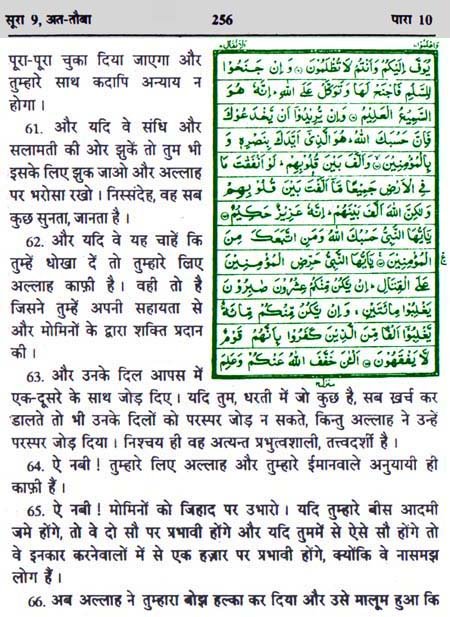 सूरा 9, अत-तौबा 256 पारा 10
يُوَفَّ اِلَيْكُمْ وَاَنْتُمْ لَا تُظْلَمُوْنَ ۞ وَاِنْ جَنَحُوْا
لِلسَّلْمِ فَاجْنَحْ لَهَا وَتَوَكَّلْ عَلَى اللّٰهِ ؕ اِنَّهٗ هُوَ
السَّمِيْعُ الْعَلِيْمُ ۞ وَاِنْ يُّرِيْدُوْۤا اَنْ يَّخْدَعُوْكَ
فَاِنَّ حَسْبَكَ اللّٰهُ ؕ هُوَ الَّذِيْۤ اَيَّدَكَ بِنَصْرِهٖ وَ
بِالْمُؤْمِنِيْنَ ۞ وَاَلَّفَ بَيْنَ قُلُوْبِهِمْ ؕ لَوْ اَنْفَقْتَ مَا
فِي الْاَرْضِ جَمِيْعًا مَّاۤ اَلَّفْتَ بَيْنَ قُلُوْبِهِمْ
وَلٰكِنَّ اللّٰهَ اَلَّفَ بَيْنَهُمْ ؕ اِنَّهٗ عَزِيْزٌ حَكِيْمٌ ۞
يٰۤاَيُّهَا النَّبِيُّ حَسْبُكَ اللّٰهُ وَمَنِ اتَّبَعَكَ مِنَ
الْمُؤْمِنِيْنَ ۞ يٰۤاَيُّهَا النَّبِيُّ حَرِّضِ الْمُؤْمِنِيْنَ
عَلَى الْقِتَالِ ؕ اِنْ يَّكُنْ مِّنْكُمْ عِشْرُوْنَ صٰبِرُوْنَ
يَغْلِبُوْا مِائَتَيْنِ ۚ وَاِنْ يَّكُنْ مِّنْكُمْ مِّائَةٌ
يَّغْلِبُوْۤا اَلْفًا مِّنَ الَّذِيْنَ كَفَرُوْا بِاَنَّهُمْ قَوْمٌ
لَّا يَفْقَهُوْنَ ۞ اَلْـٰٔنَ خَفَّفَ اللّٰهُ عَنْكُمْ وَعَلِمَ
पूरा-पूरा चुका दिया जाएगा और
तुम्हारे साथ कदापि अन्याय न
होगा ।
61. और यदि वे संधि और
सलामती की ओर झुकें तो तुम भी
इसके लिए झुक जाओ और अल्लाह
पर भरोसा रखो । निस्संदेह, वह सब
कुछ सुनता, जानता है ।
62. और यदि वे यह चाहें कि
तुम्हें धोखा दें तो तुम्हारे लिए
अल्लाह काफ़ी है । वही तो है
जिसने तुम्हें अपनी सहायता से
और मोमिनों के द्वारा शक्ति प्रदान
की ।
63. और उनके दिल आपस में
एक-दूसरे के साथ जोड़ दिए । यदि तुम, धरती में जो कुछ है, सब ख़र्च कर
डालते तो भी उनके दिलों को परस्पर जोड़ न सकते, किन्तु अल्लाह ने उन्हें
परस्पर जोड़ दिया । निश्चय ही वह अत्यन्त प्रभुत्वशाली, तत्त्वदर्शी है ।
64. ऐ नबी ! तुम्हारे लिए अल्लाह और तुम्हारे ईमानवाले अनुयायी ही
काफ़ी हैं ।
65. ऐ नबी ! मोमिनों को जिहाद पर उभारो । यदि तुम्हारे बीस आदमी
जमे होंगे, तो वे दो सौ पर प्रभावी होंगे और यदि तुममें से ऐसे सौ होंगे तो
वे इनकार करनेवालों में से एक हज़ार पर प्रभावी होंगे, क्योंकि वे नासमझ
लोग हैं ।
66. अब अल्लाह ने तुम्हारा बोझ हल्का कर दिया और उसे मालूम हुआ कि